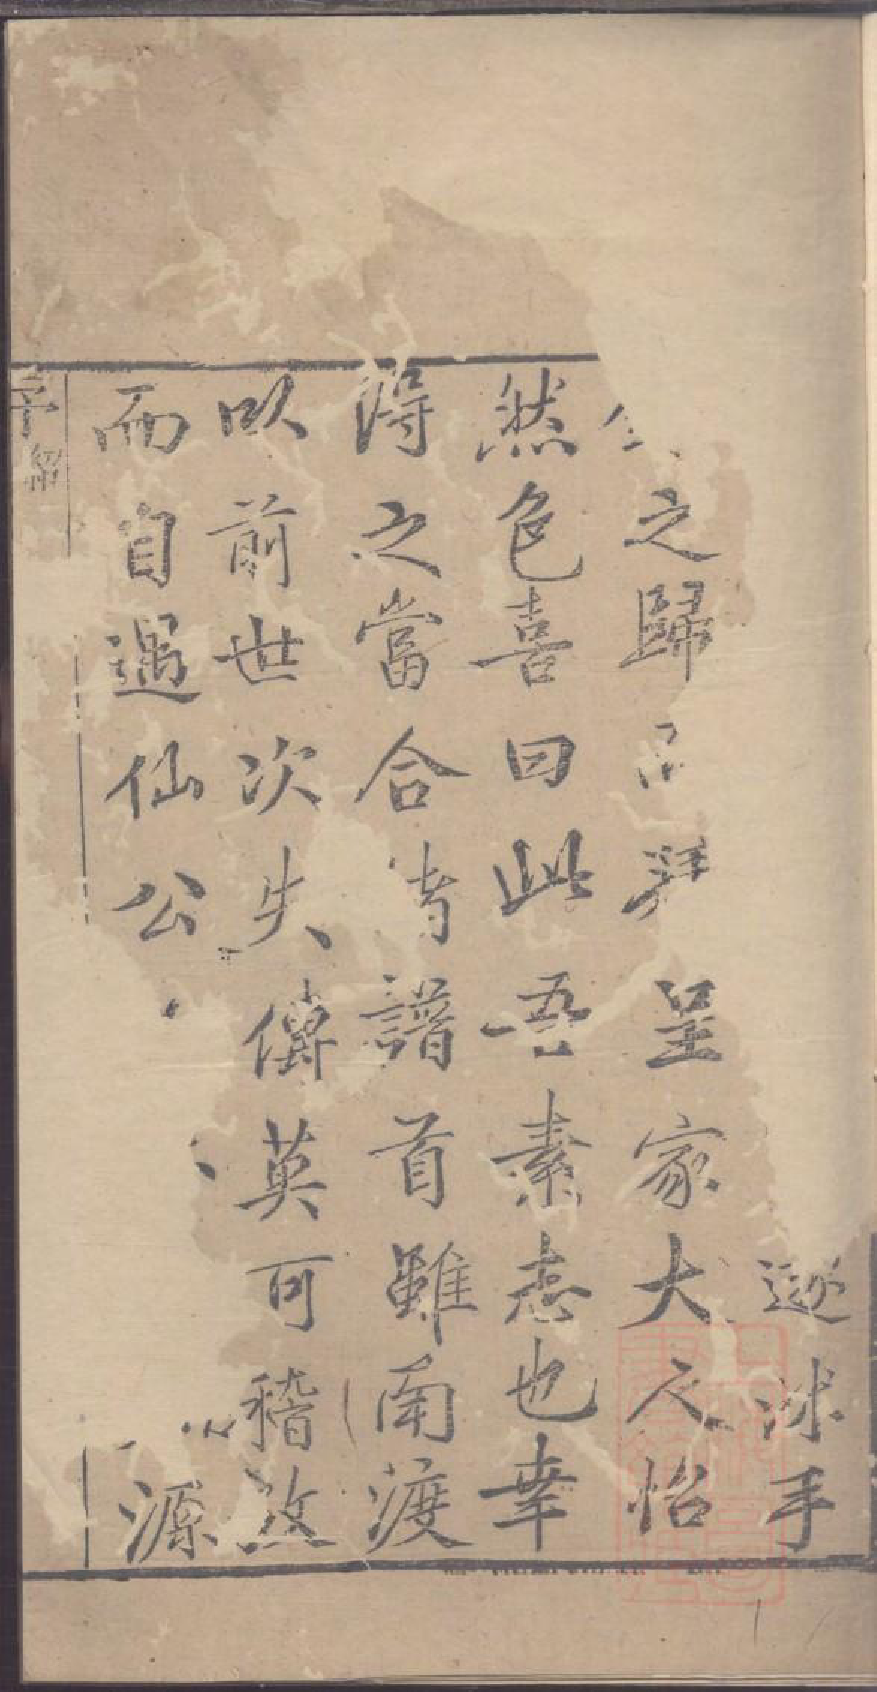 遂沐手
之歸
呈家大人怡
然色喜曰此吾素志也幸
得之當合諸譜首雖南渡
以前世次失傳莫可稽攷
而自遇仙公
源